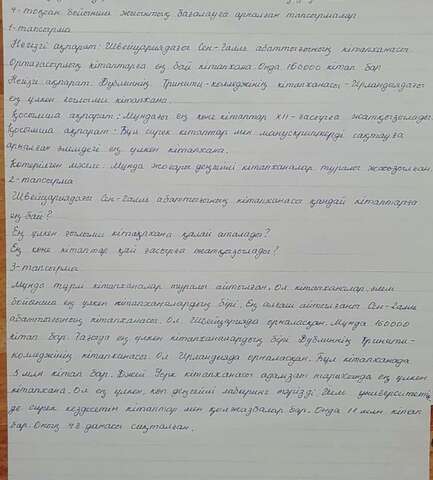 4-тоқсан бойынша жиынтық бағалауға арналған тапсырмалар
1-тапсырма
Негізгі ақпарат: Швейцариядағы Сен-Галл абаттығының кітапханасы.
Ортағасырлық кітаптарға ең бай кітапхана. Онда 160000 кітап бар.
Негізгі ақпарат. Дублиннің Тринити-колледжінің кітапханасы - Ирландиядағы
ең үлкен ғылыми кітапхана.
Қосымша ақпарат: Мұндағы ең көне кітаптар XII-ғасырға жатқызылады.
Қосымша ақпарат: Бұл сирек кітаптар мен манускриптерді сақтауға
арналған әлемдегі ең үлкен кітапхана.
Көтерілген мәселе: Мұнда жоғары деңгейлі кітапханалар туралы жазылған.
2-тапсырма
Швейцариядағы Сен-Галл абаттығының кітапханасы қандай кітаптарға
ең бай?
Ең үлкен ғылыми кітапхана қалай аталады?
Ең көне кітаптар қай ғасырға жатқызылады?
3-тапсырма
Мұнда түрлі кітапханалар туралы айтылған. Ол кітапханалар әлем
бойынша ең үлкен кітапханалардың бірі. Ең алғаш айтылғаны Сен-Галл
абаттығының кітапханасы. Ол Швейцарияда орналасқан. Мұнда 160000
кітап бар. Тағы да ең үлкен кітапханалардың бірі Дублиннің Тринити-
колледжінің кітапханасы. Ол Ирландияда орналасқан. Бұл кітапханада
5 млн кітап бар. Джей Уокер кітапханасы адамзат тарихында ең үлкен
кітапхана. Ол ең үлкен көп деңгейлі лабиринт тәрізді. Йель университеті
де сирек кездесетін кітаптар мен қолжазбалар бар. Онда 11 млн. кітап
бар. Оның 48 данасы сақталған.